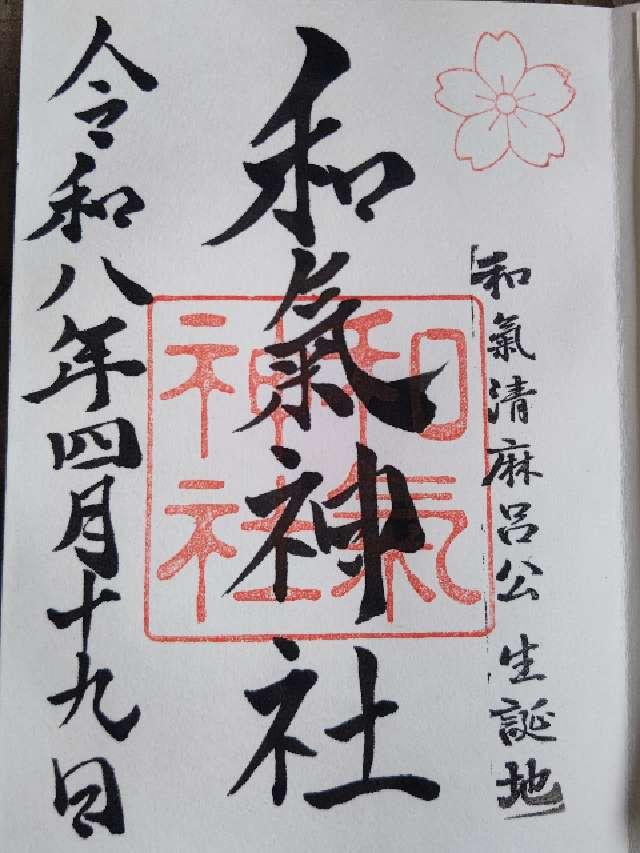 和氣清麻呂公 生誕地
和氣神社
和氣
神社
令和八年四月十九日